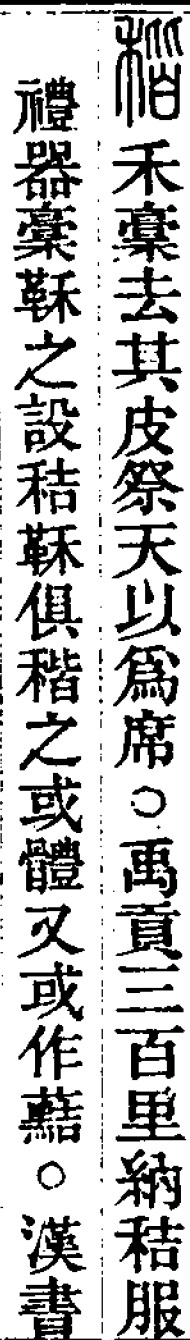 稭禾稾去其皮祭天以爲席○禹貢三百里納秸服
禮器稾鞂之設秸鞂俱稭之或體又或作䕸○漢書